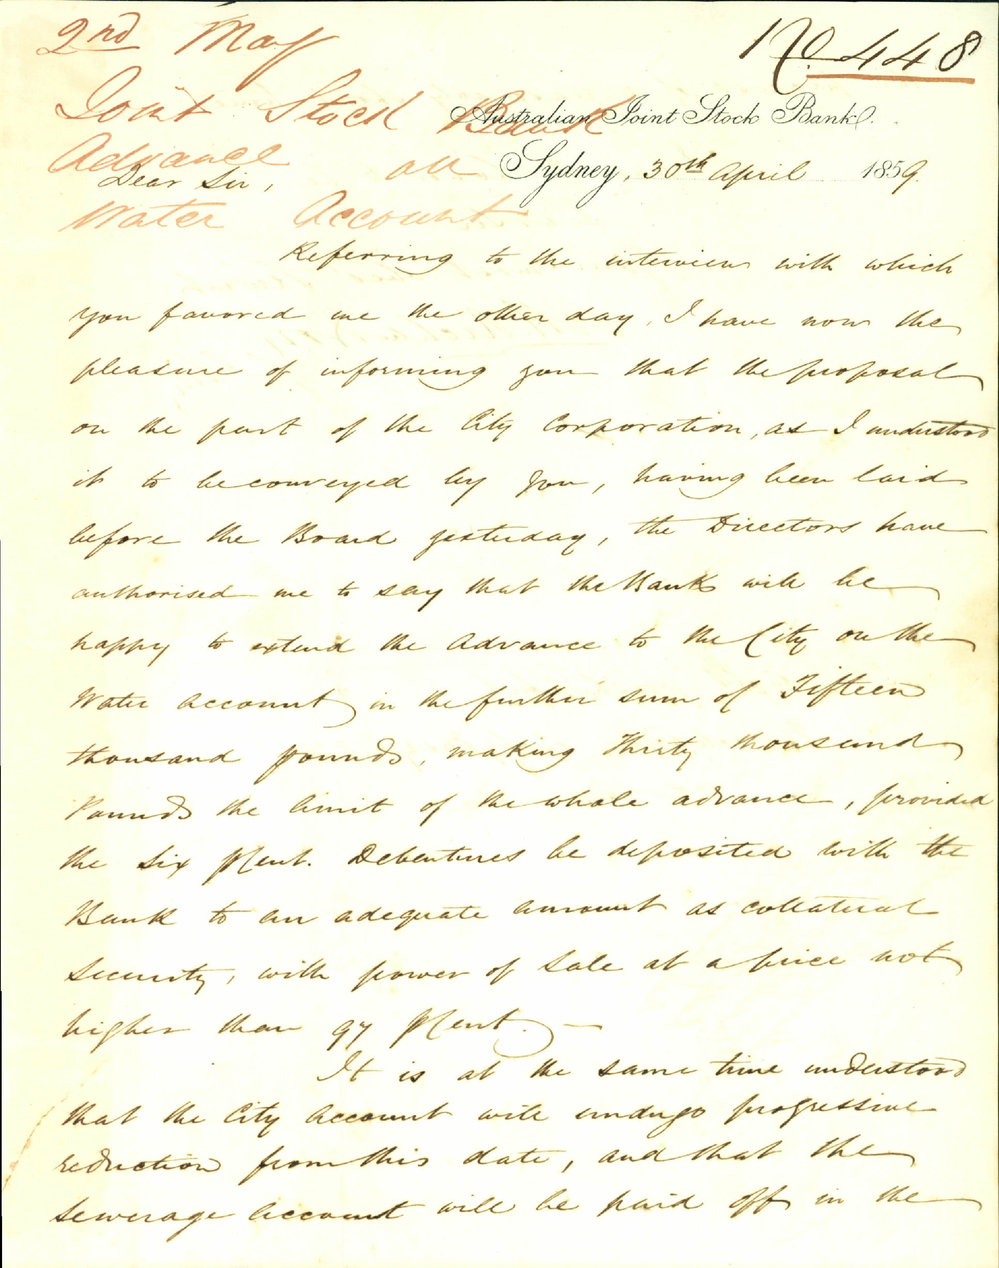 2nd May
No. 448
Joint Stock Bank
Australian Joint Stock Bank.
Advance on
Sydney, 30th April 1859.
Dear Sir,
Water Account
Referring to the interview with which
you favored me the other day, I have now the
pleasure of informing you that the proposal
on the part of the City Corporation, as I understood
it to be conveyed by you, having been laid
before the Board yesterday, the Directors have
authorised me to say that the Bank will be
happy to extend the advance to the City on the
Water Account in the further sum of Fifteen
thousand pounds, making Thirty thousand
Pounds the limit of the whole advance, provided
the six pCent. Debentures be deposited with the
Bank to an adequate amount as collateral
security, with power of sale at a price not
higher than 97 pCent. —
It is at the same time understood
that the City Account will undergo progressive
reduction from this date, and that the
Sewerage Account will be paid off in the